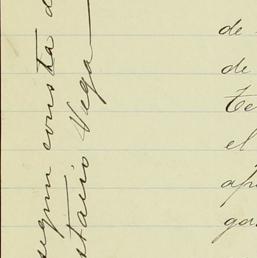 segun consta d
stacio Vega
de
de
Te
el
apr
gas